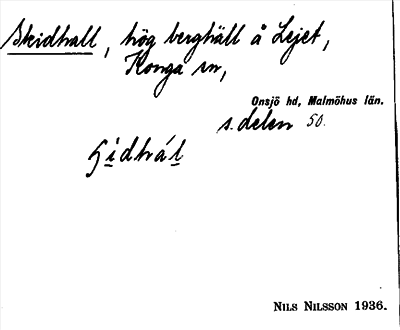 Skidhall, hög berghäll å Lejet,
Konga sn,
Onsjö hd, Malmöhus län.
s. delen 50.
NILS NILSSON 1936.